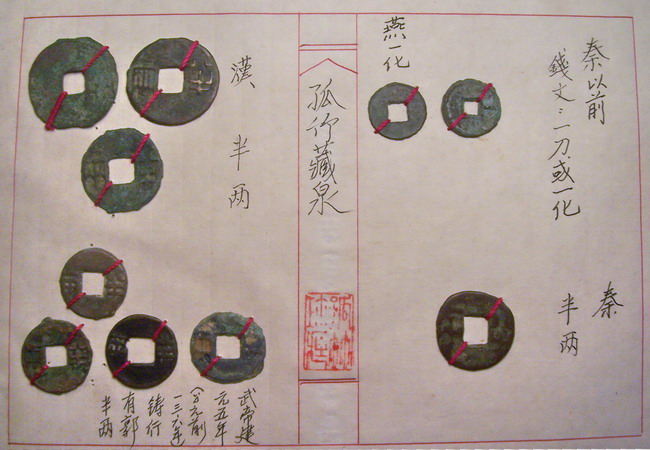 秦以前
錢文:一刀或一化
燕一化
秦
半两
孤竹藏泉
漢
半两
武帝建
元五年
(公元前
一三六年)
铸行
有郭
半两